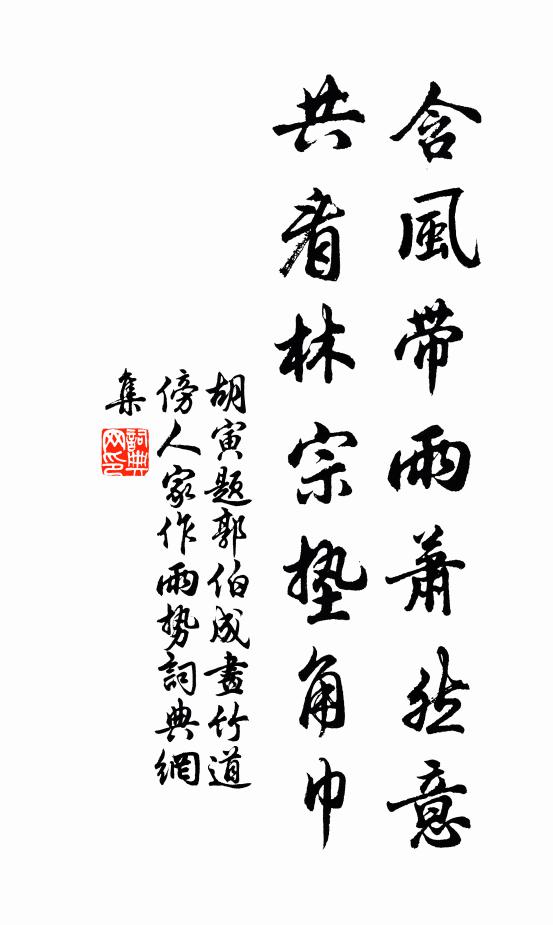 含風帶雨蕭然意
共看林宗墊角巾
胡寅題郭伯成畫竹道
傍人家作雨勢詞典網
集
詞典
网印